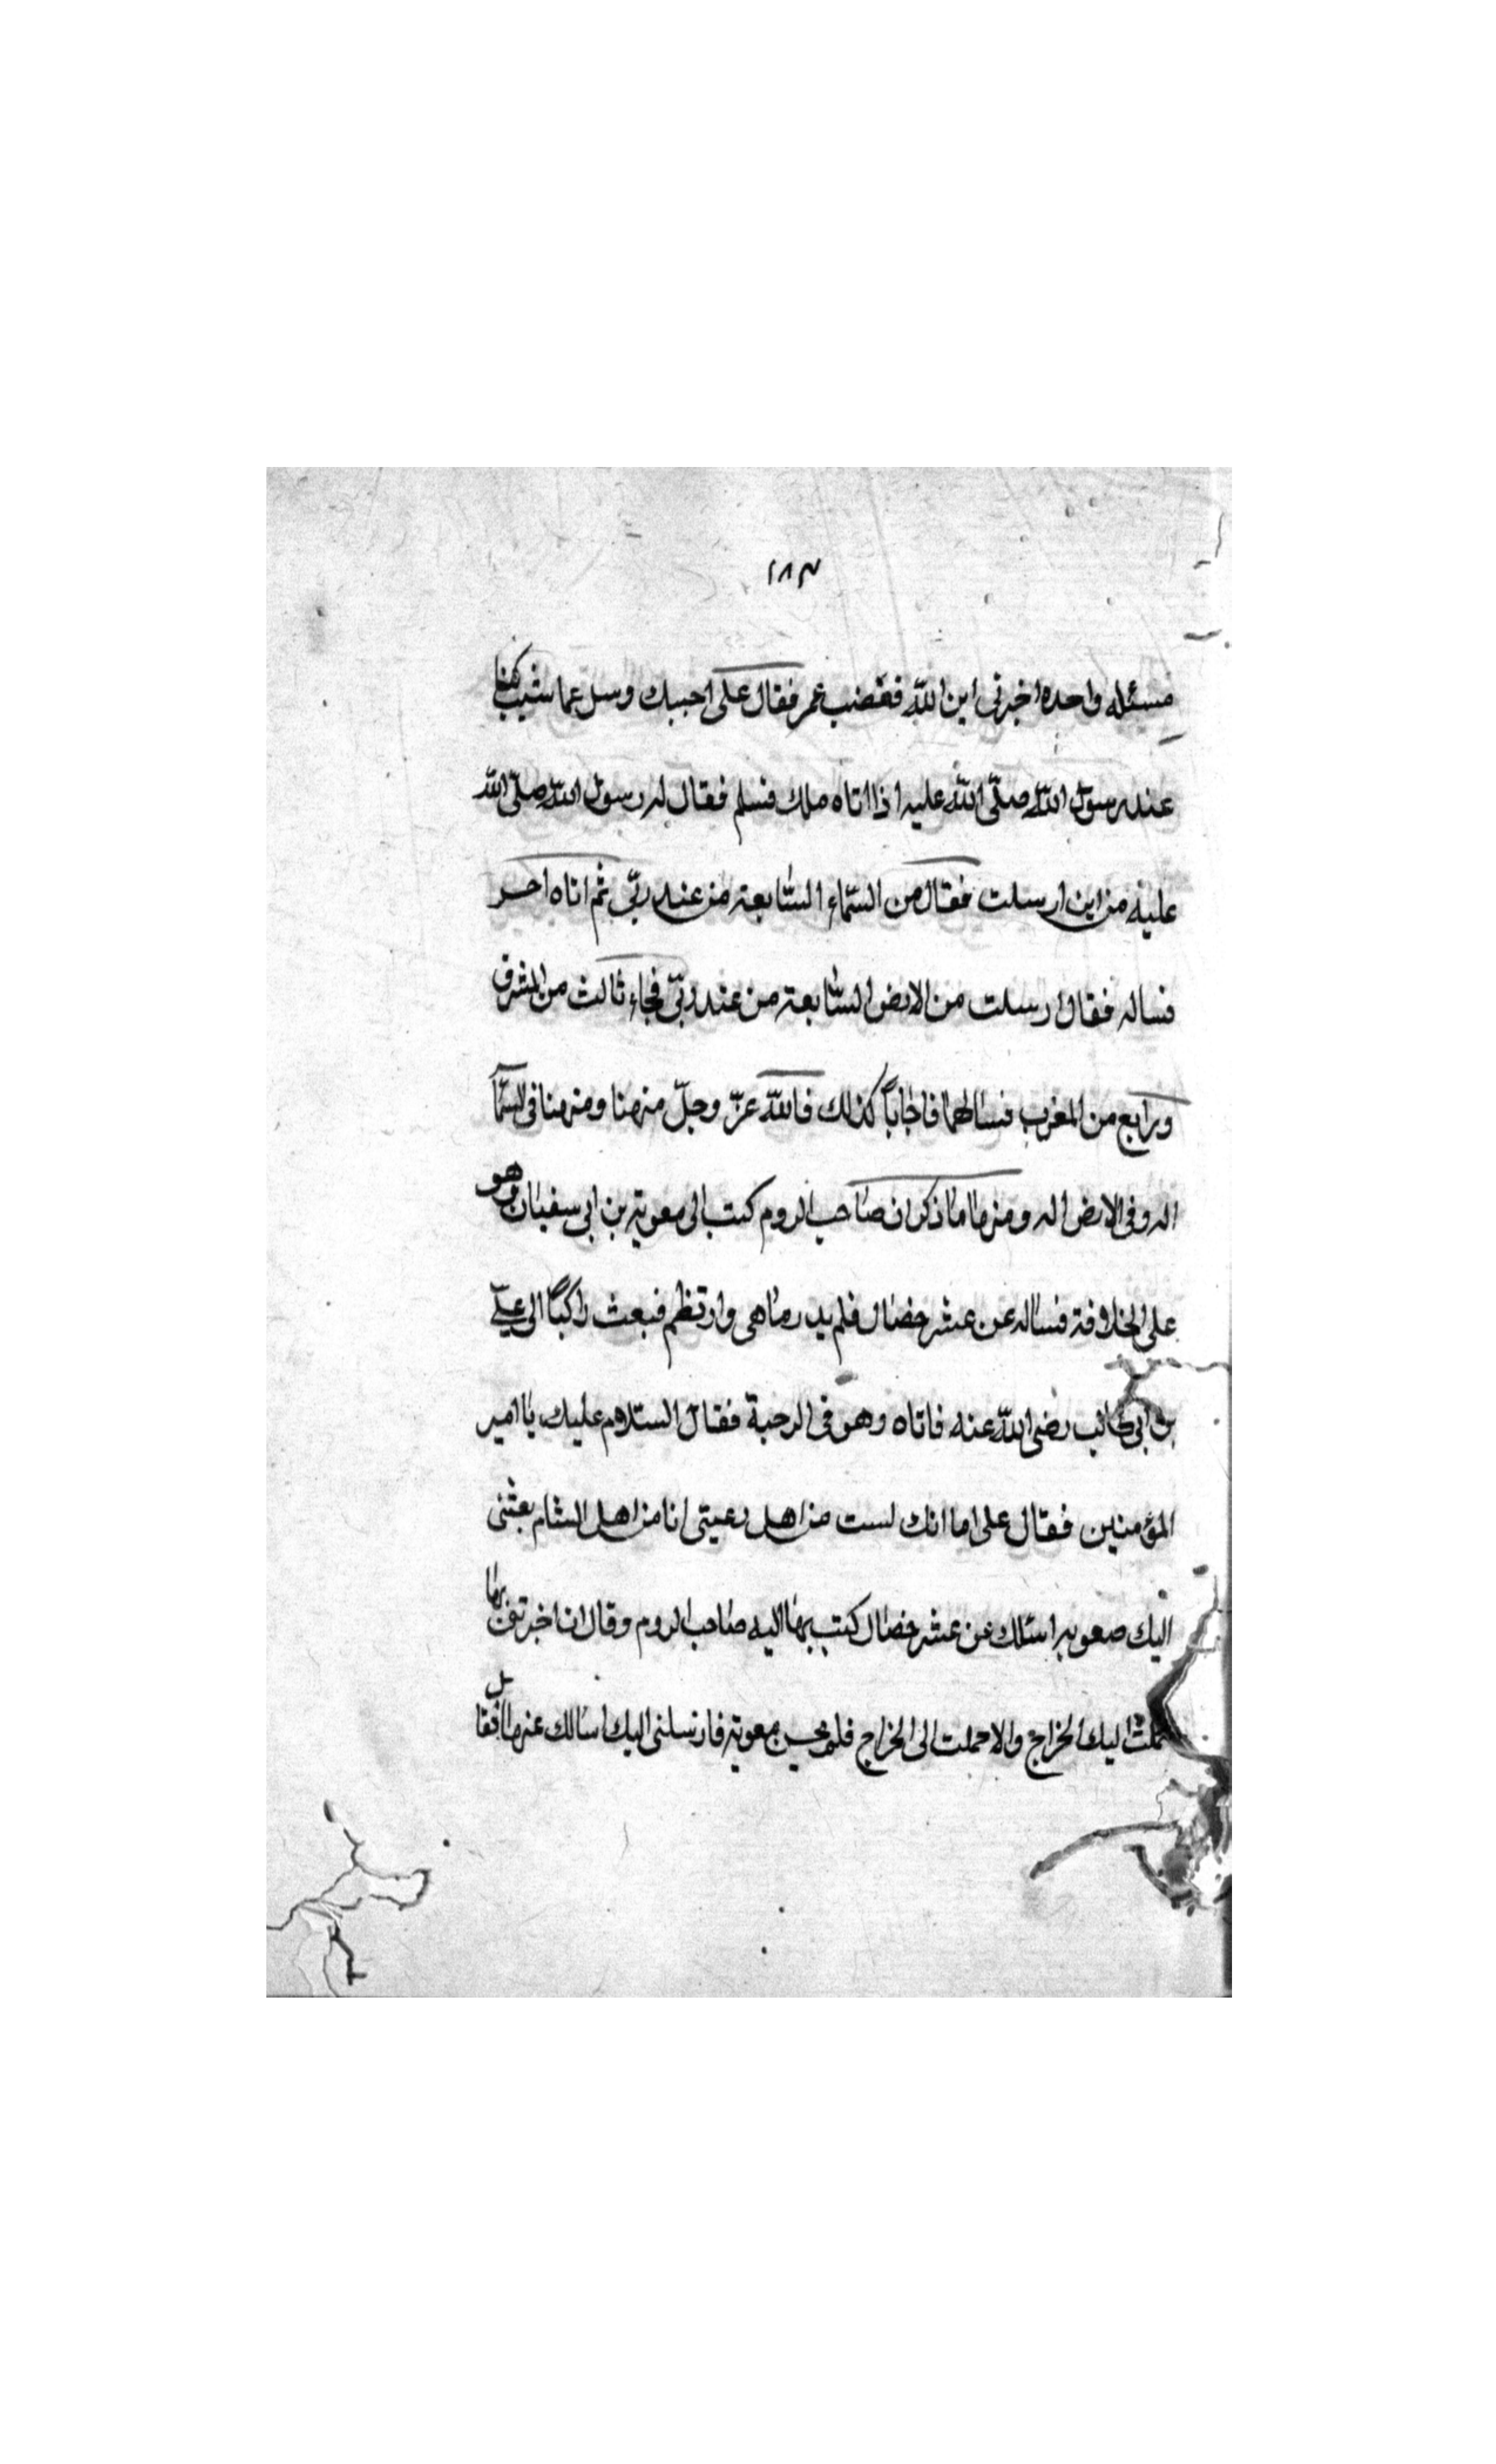 ١٨٣
مسئله واحده اخبرنى اين الله فغضب عمر فقال على احببك وسل عما شيت كنا
عند رسول الله صلّى الله عليه اذا اتاه ملك فسلم فقال له رسول الله صلّى الله
عليه من اين ارسلت فقال من السّماء السّابعة من عند ربّى ثم اتاه اخر
فساله فقال ارسلت من الارض السّابعة من عند ربّى فجاء ثالث من المشرق
ورابع من المغرب فسالهما فاجاباً كذلك فالله عزّ وجلّ منهنا ومنهنا فى السّما
اله وفى الارض اله ومنها ما ذكر ان صاحب الروم كتب الى معوية بن ابى سفيان وهو
على الخلافة فساله عن عشر خصال فلم يدر ما هى وارتطم فبعث راكباً الى علىّ
بن ابى طالب رضى الله عنه فاتاه وهو فى الرحبة فقال السّلام عليك يا امير
المؤمنين فقال على اما انك لست من اهل رعيتى انا من اهل الشام بعثنى
اليك معويه اسئلك عن عشر خصال كتب بها اليه صاحب الروم وقال ان اخبرتنى بها
حملت اليك الخراج والا حملت الى الخراج فلم يحسن معوية فارسلنى اليك اسالك عنها فقال